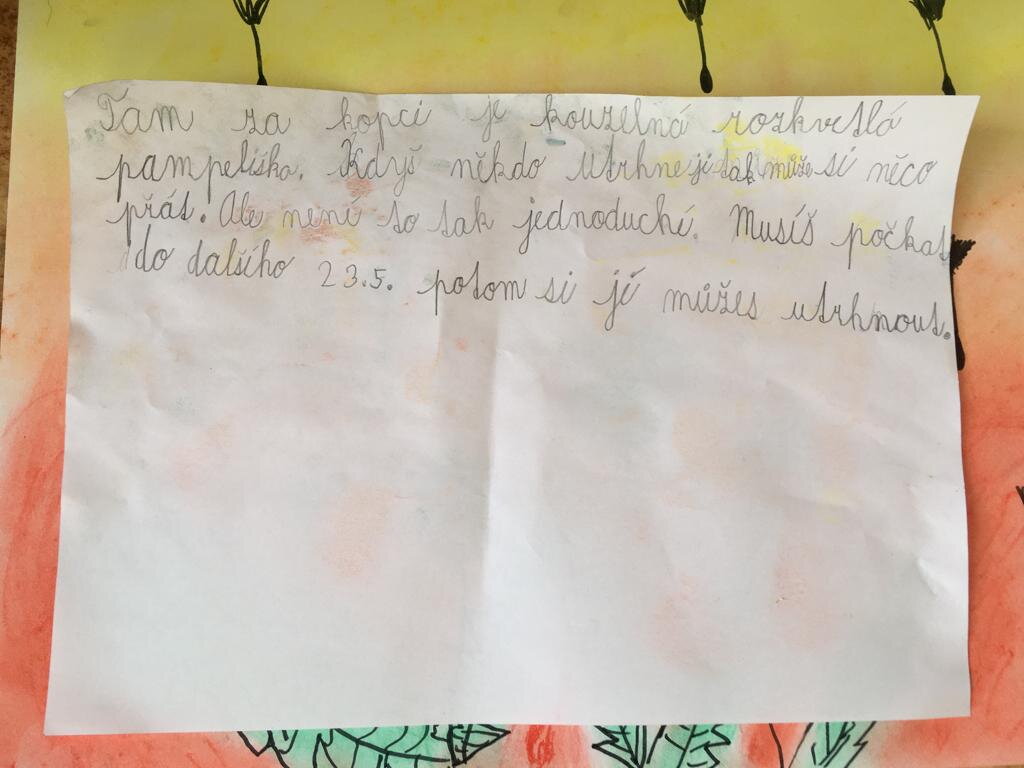 Tam za kopci je kouzelná rozkvetlá
pampeliška. Kdyš někdo utrhne ji tak může si něco
přát. Ale není to tak jednoduché. Musíš počkat
do dalšího 23.5. potom si jí můžeš utrhnout.